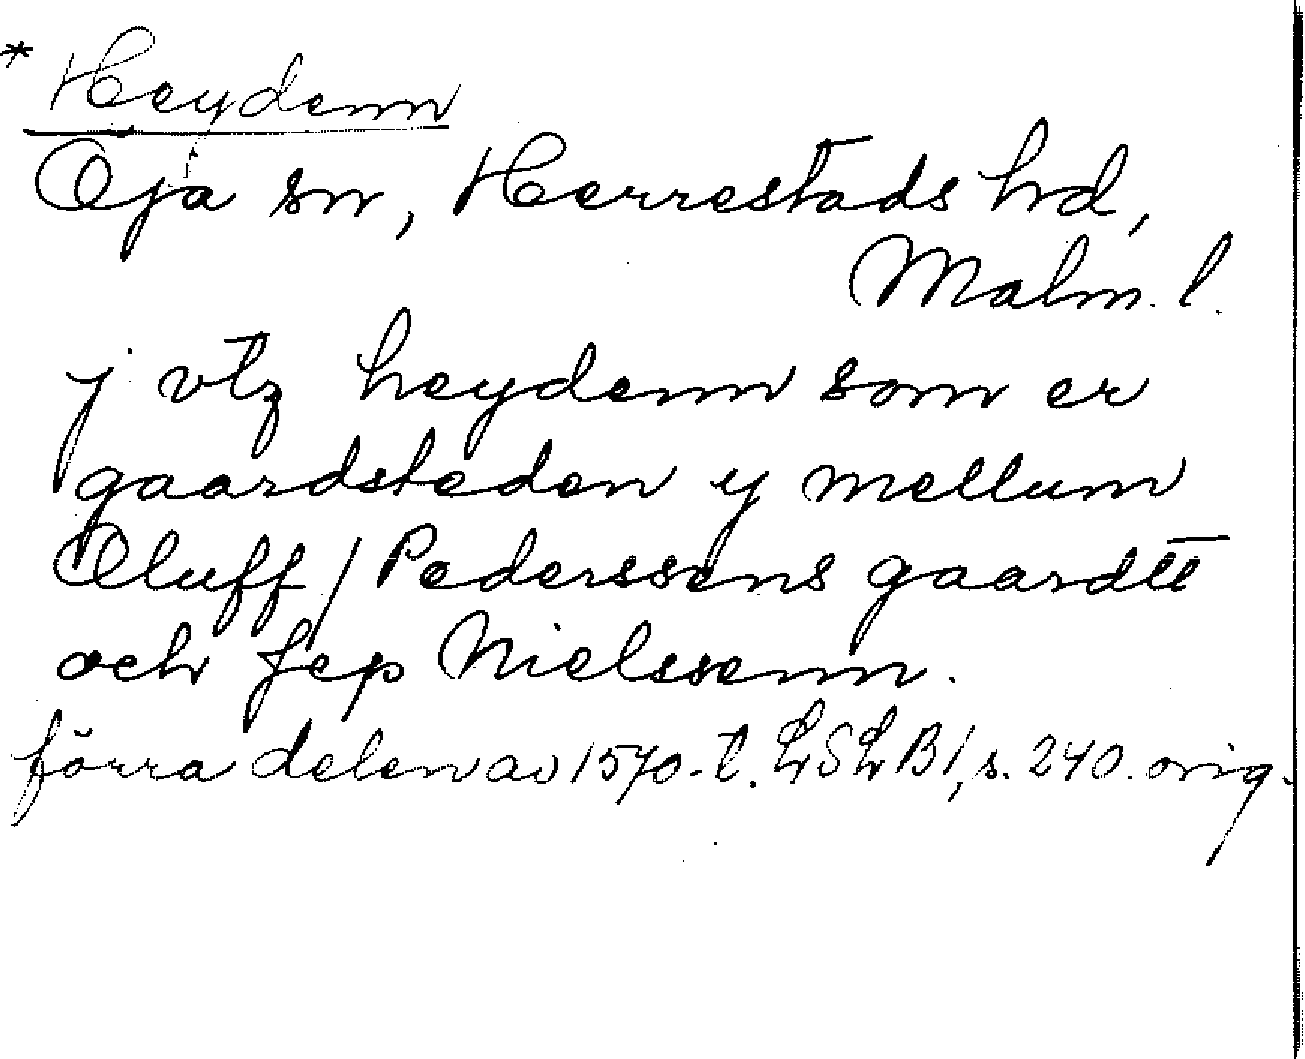 * Heydenn
Öja sn, Herrestads hd,
Malm. l.
j vtz heydenn som er
gaardsteden y mellum
Oluff / Pederssens gaardtt
och Jep Nielssenn.
förra delen av 1570-t. LSLB1, s. 240. orig.